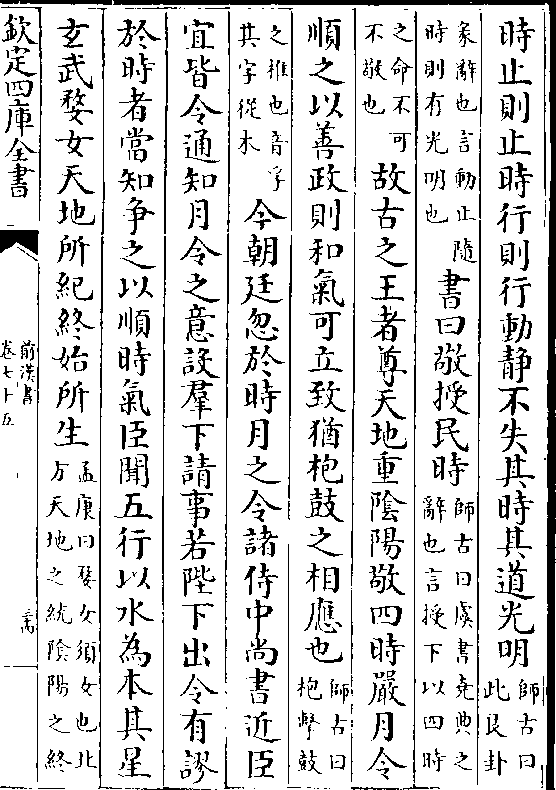 時止則止時行則行動静不失其時其道光明師古曰此艮卦
彖辭也言動止隨時則有光明也書曰敬授民時師古曰虞書堯典之辭也言授下以四時
之命不可不敬也故古之王者尊天地重陰陽敬四時嚴月令
順之以善政則和氣可立致猶枹鼓之相應也師古曰枹擊鼓
之椎也音孚其字從木今朝廷忽於時月之令諸侍中尚書近臣
宜皆令通知月令之意設羣下請事若陛下出令有謬
於時者當知争之以順時氣臣聞五行以水為本其星
玄武婺女天地所紀終始所生孟康曰婺女須女也北方天地之統陰陽之終
欽定四庫全書
前漢書
卷七十五